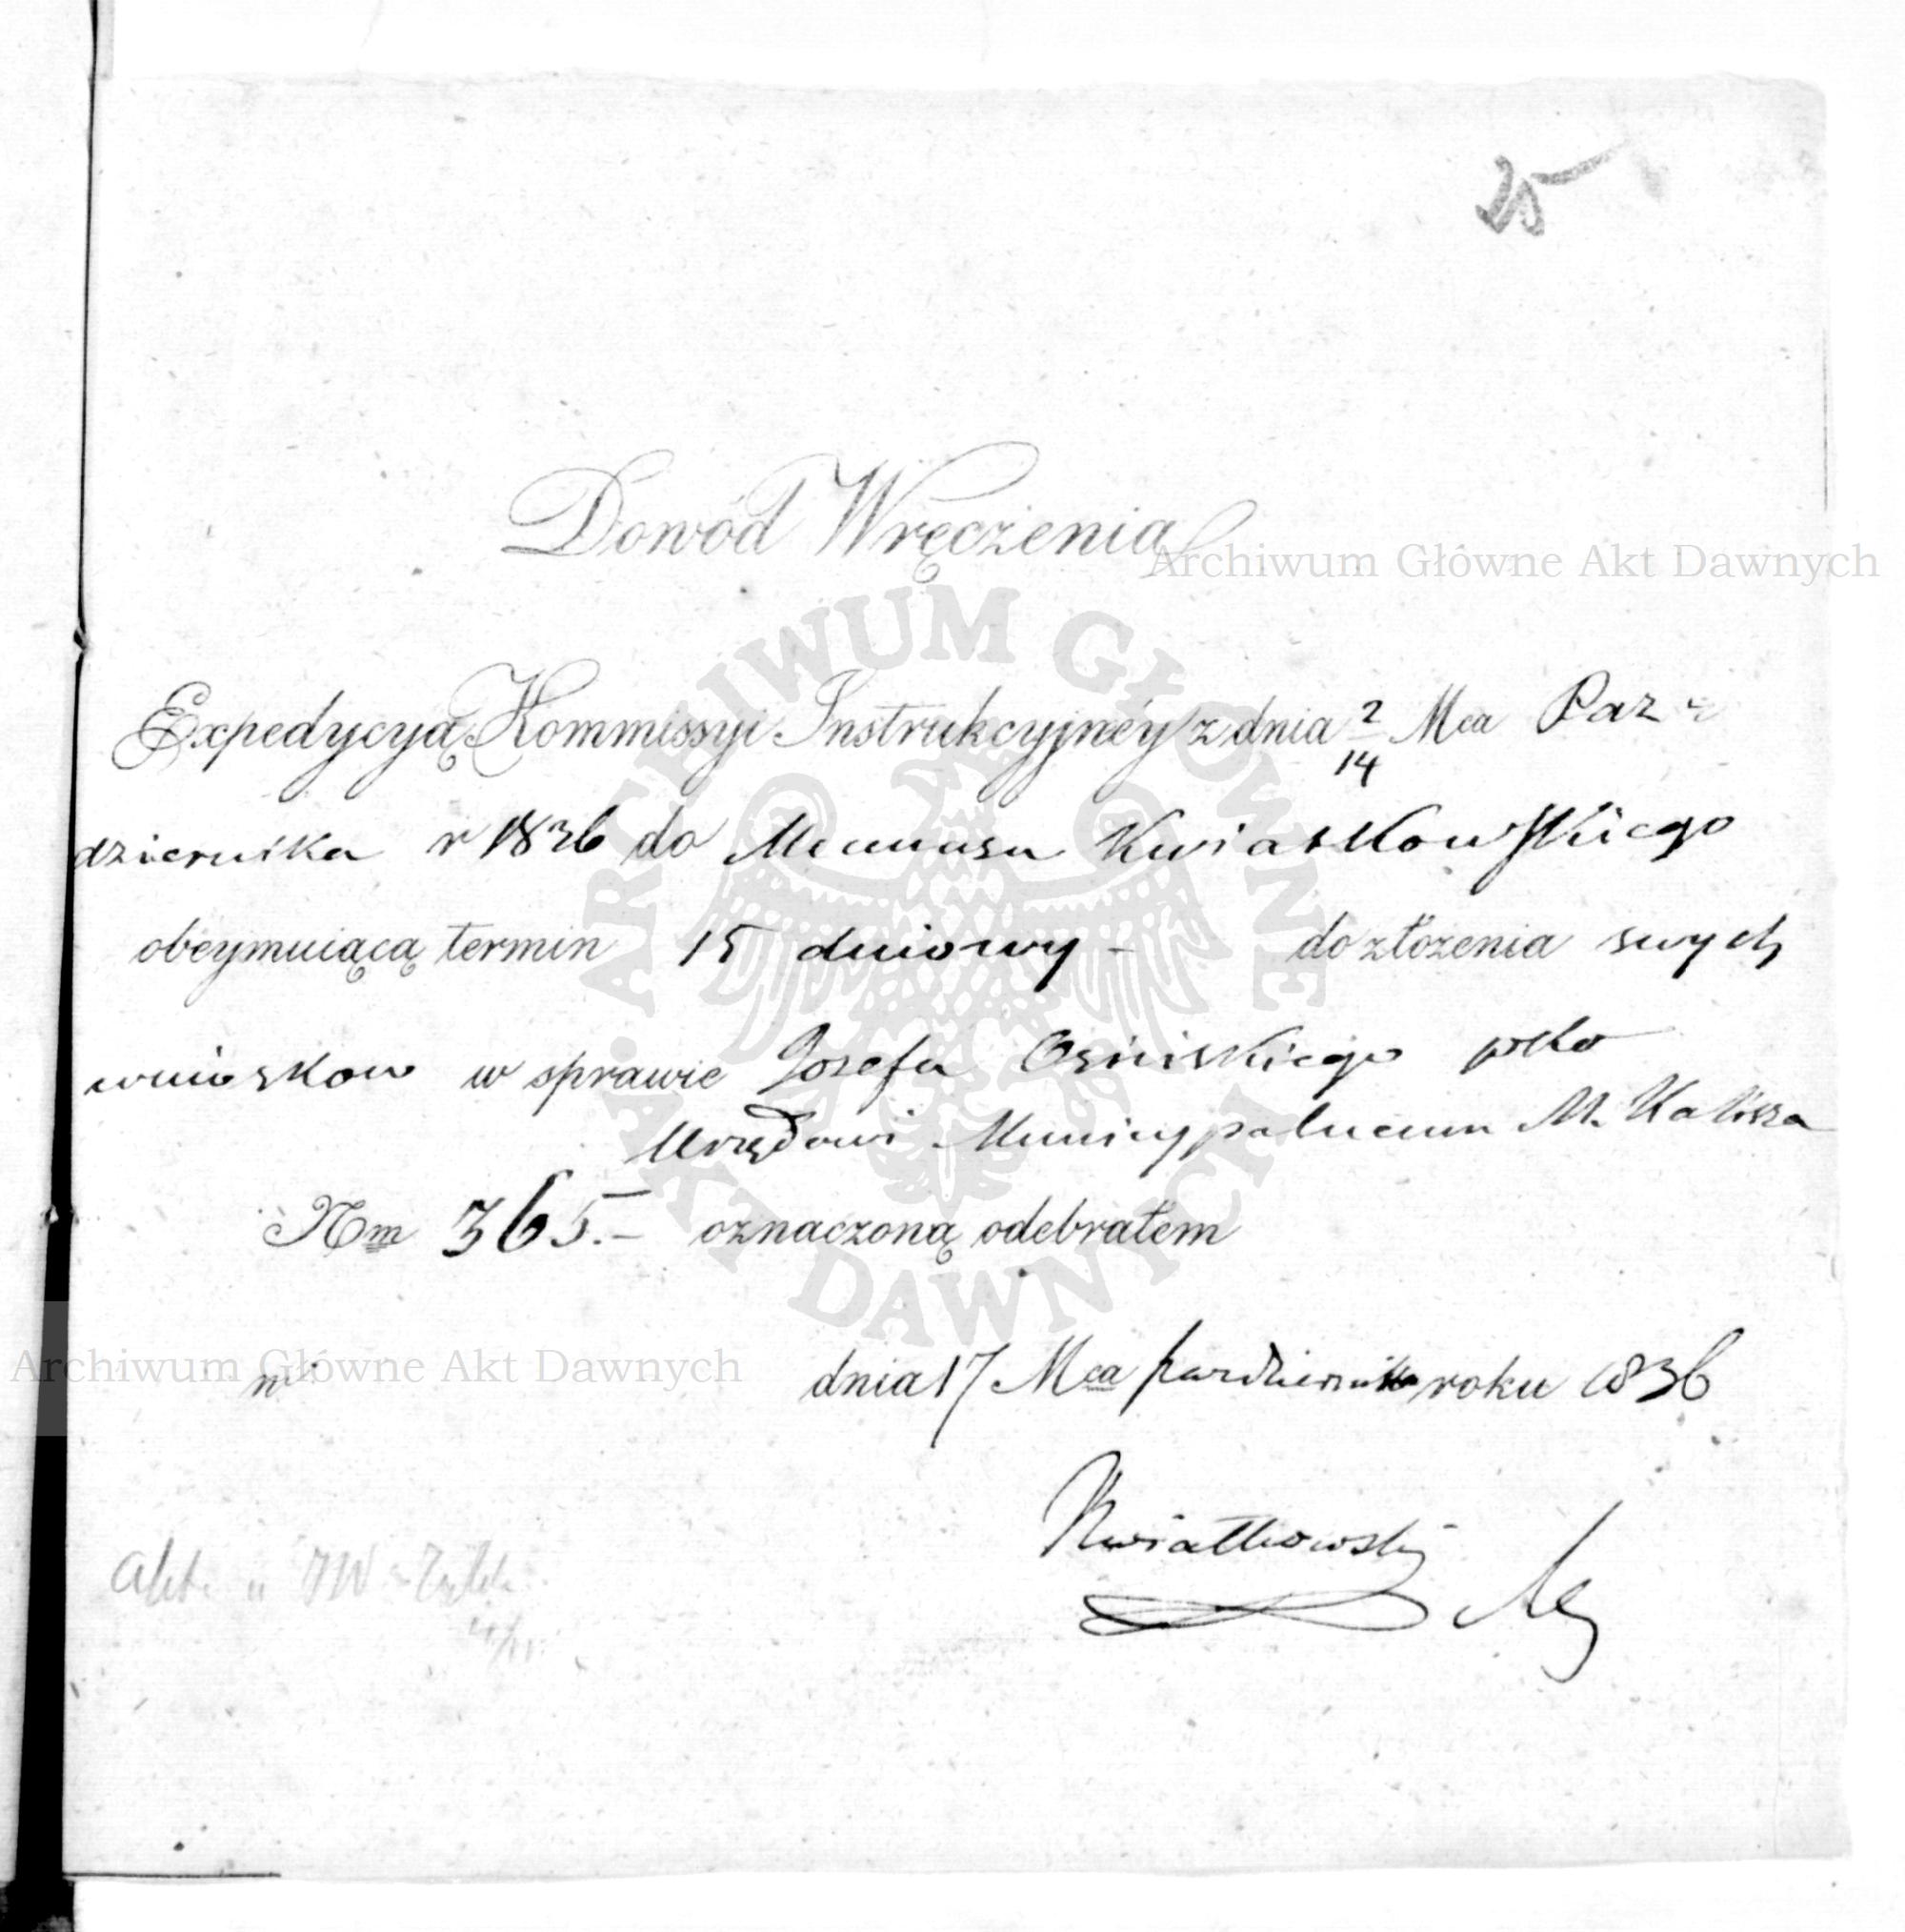 25
Dowód Wręczenia
Archiwum Główne Akt Dawnych
Expedycyą Kommissyi Instrukcyjnéy z dnia 2/14 Mca Paz-
dziernika r 1836 do Mecenasa Kwiatkowskiego
obeymuiącą termin 15 dniowy - do złożenia swych
wnioskow w sprawie Jozefa Osinskiego pko
Urzędowi Municypalnemu M. Kalisza
Nm 365.- oznaczoną odebrałem
Archiwum Główne Akt Dawnych
w dnia 17 Mca pazdziernika roku 1836
Kwiatkowski
Akta u JW
ARCHIWUM GŁÓWNE AKT DAWNYCH